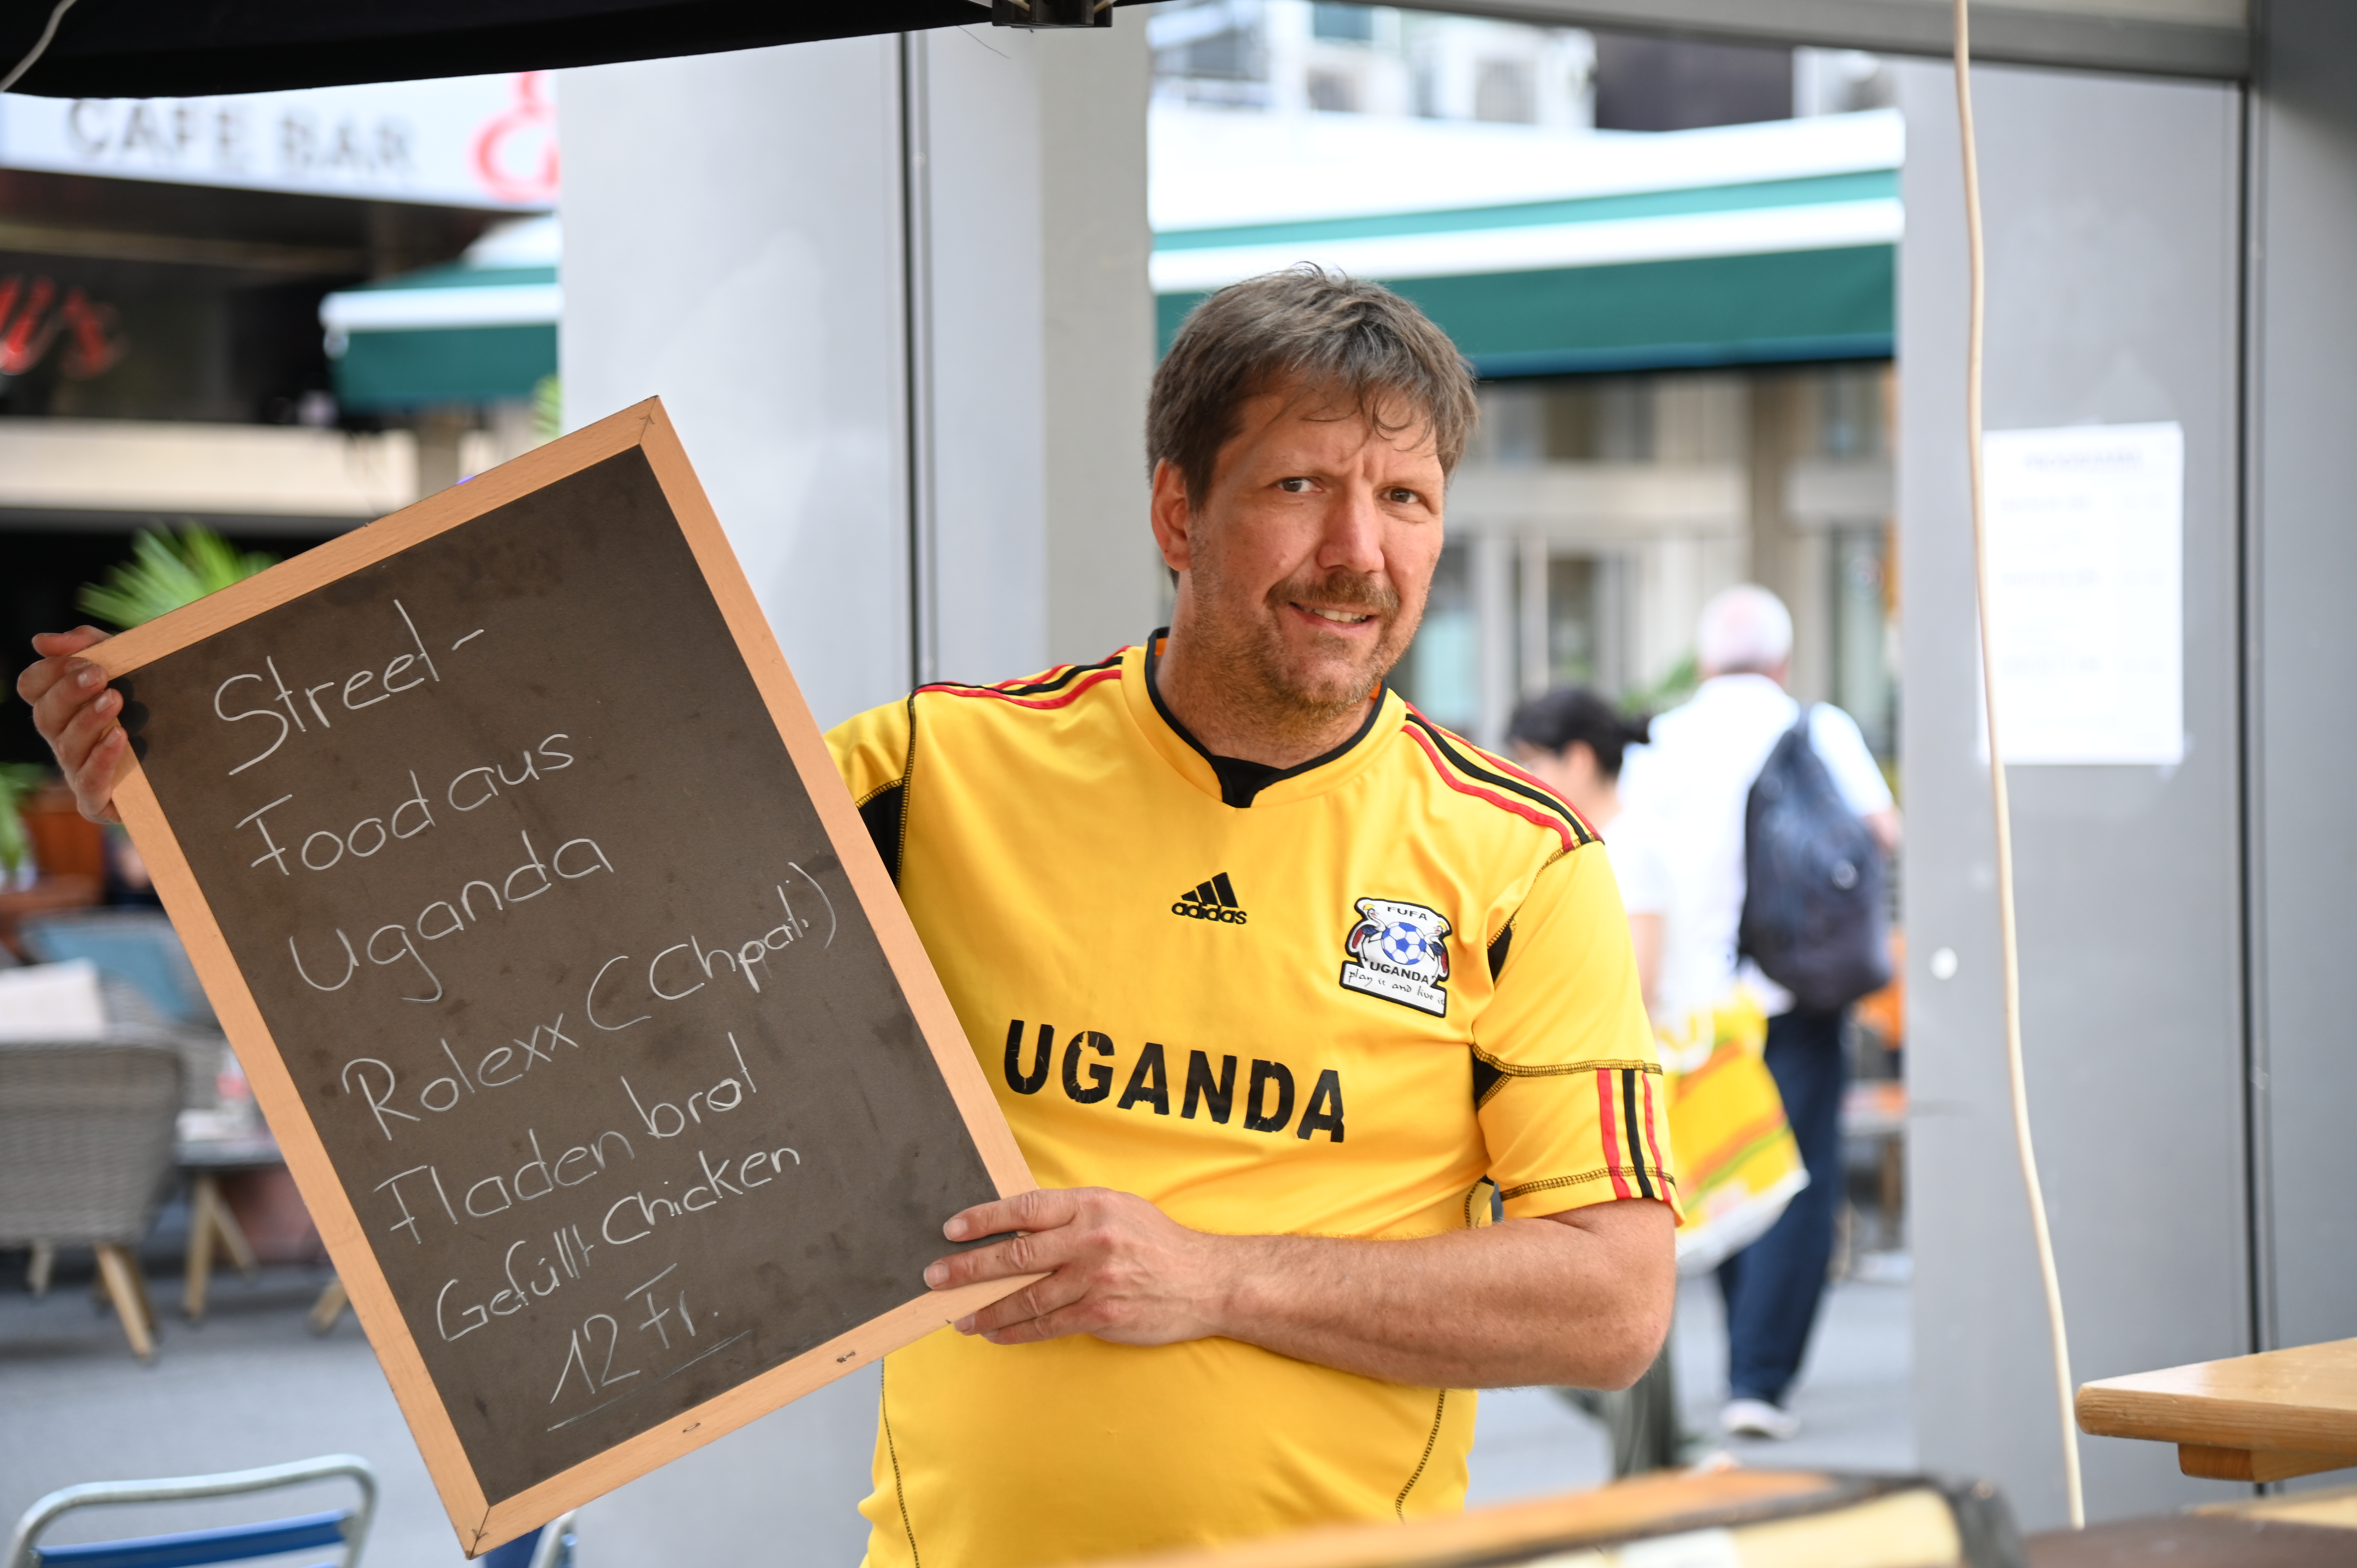 CAFE BAR
Street-
Food aus
Uganda
Rolexx (Chpati)
Fladenbrot
Gefüllt Chicken
12 Fr.
adidas
FUFA
UGANDA
play it and live it
UGANDA